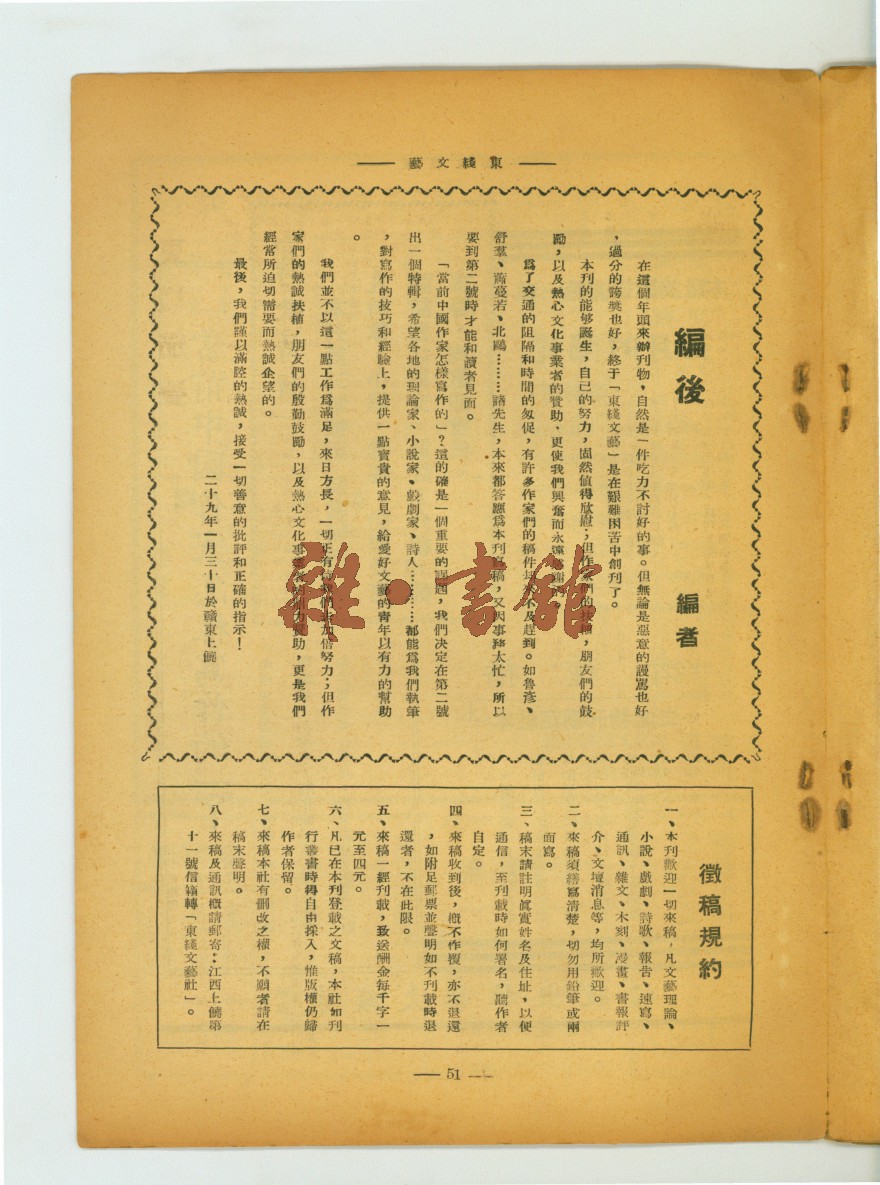 東綫文藝
編後
編者
在這個年頭來辦刊物，自然是一件吃力不討好的事。但無論是惡意的謾罵也好
，過分的誇獎也好，終于「東綫文藝」是在艱難困苦中創刊了。
本刊的能够誕生，自己的努力，固然值得欣慰；但作家們的扶植，朋友們的鼓
勵，以及熱心文化事業者的贊助，更使我們興奮而永遠
爲了交通的阻隔和時間的匆促，有許多作家們的稿件 不及趕到。如魯彥、
舒羣、蕭蔓若、北鷗………諸先生，本來都答應爲本刊 稿，又因事務太忙，所以
要到第二號時才能和讀者見面。
「當前中國作家怎樣寫作的」？這的確是一個重要的課題，我們决定在第二號
出一個特輯，希望各地的理論家、小說家、戲劇家、詩人…………都能爲我們執筆
，對寫作的技巧和經驗上，提供一點寶貴的意見，給愛好文藝的靑年以有力的幫助
。
我們並不以這一點工作爲滿足，來日方長，一切正有 我們 加倍努力；但作
家們的熱誠扶植，朋友們的殷勤鼓勵，以及熱心文化事業 力贊助，更是我們
經常所迫切需要而熱誠企望的。
最後，我們謹以滿腔的熱誠，接受一切善意的批評和正確的指示！
二十九年一月三十日於贛東上饒
徵稿規約
一、本刊歡迎一切來稿，凡文藝理論、
小說、戲劇、詩歌、報告、速寫、
通訊、雜文、木刻、漫畫、書報評
介、文壇消息等，均所歡迎。
二、來稿須繕寫清楚，切勿用鉛筆或兩
面寫。
三、稿末請註明眞實姓名及住址，以便
通信，至刊載時如何署名，聽作者
自定。
四、來稿收到後，概不作覆，亦不退還
，如附足郵票並聲明如不刊載時退
還者，不在此限。
五、來稿一經刊載，致送酬金每千字一
元至四元。
六、凡已在本刊登載之文稿，本社如刊
行叢書時得自由採入，惟版權仍歸
作者保留。
七、來稿本社有刪改之權，不願者請在
稿末聲明。
八、來稿及通訊概請郵寄：江西上饒第
十一號信箱轉「東綫文藝社」。
51
雜·書館